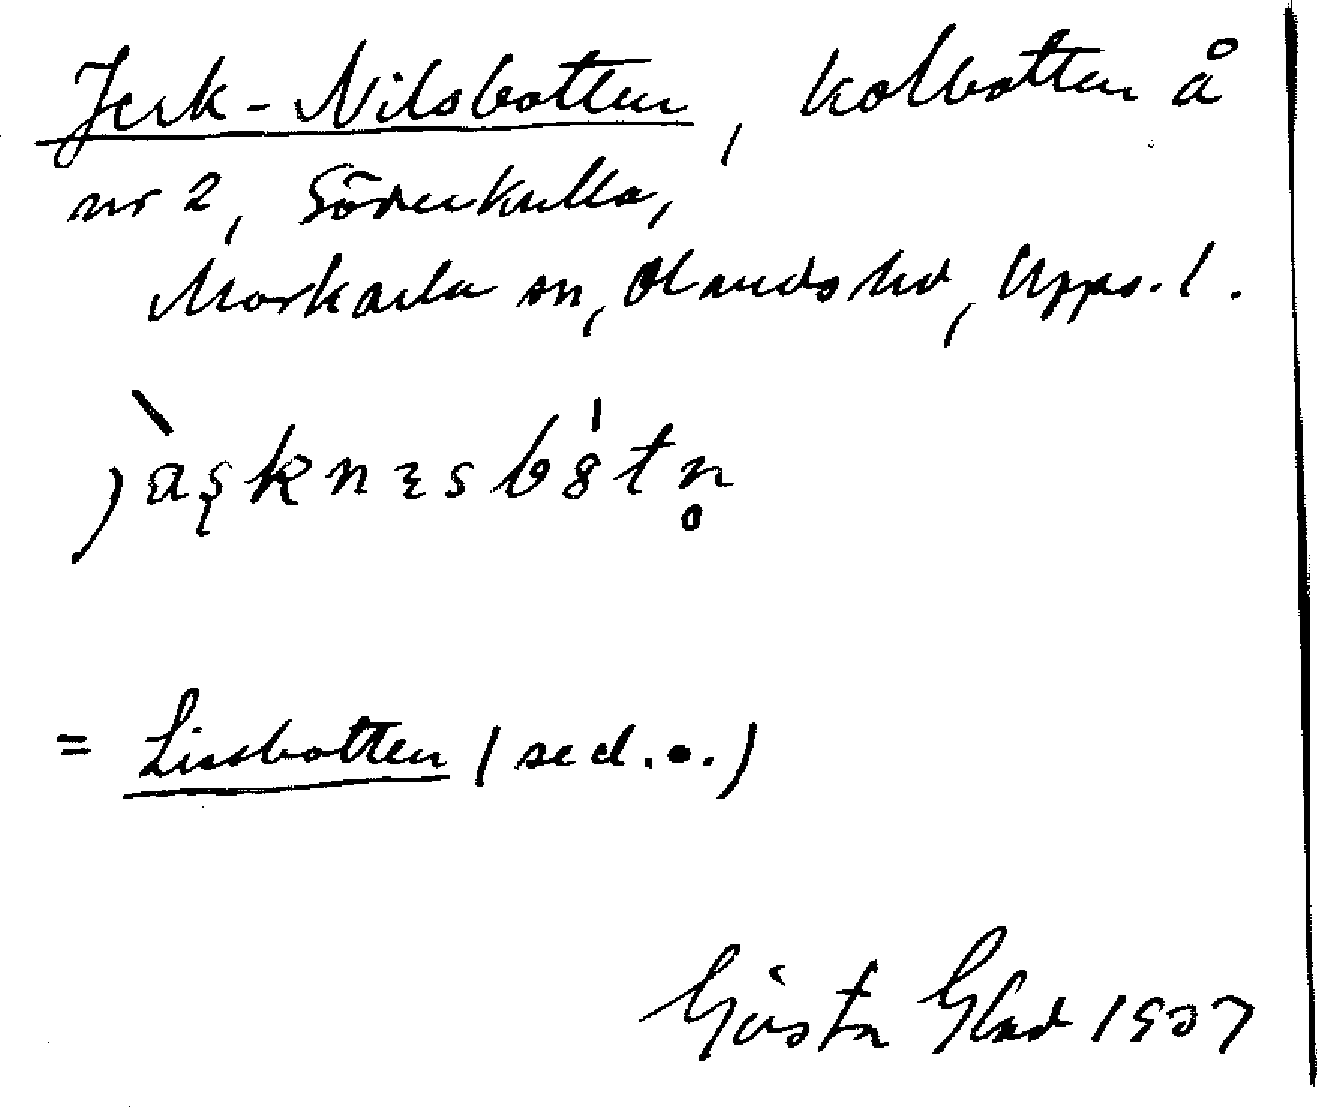 Jerk-Nilsbotten, kolbotten å
nr 2, Söderkulla,
Morkarla sn, Olands hd, Upps. l.
= Lissbotten (se d. o.)
Gösta Glad 1937